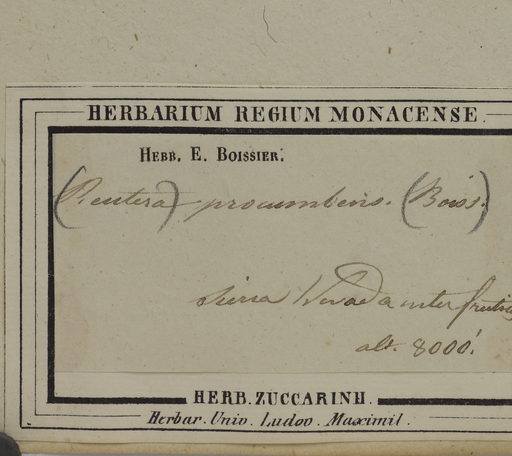 HERBARIUM REGIUM MONACENSE.
HERB. E. BOISSIER.
(Reutera) procumbens. (Boiss.)
Sierra Nevada inter
alt. 8000'.
HERB. ZUCCARINII.
Herbar. Univ. Ludov. Maximil.